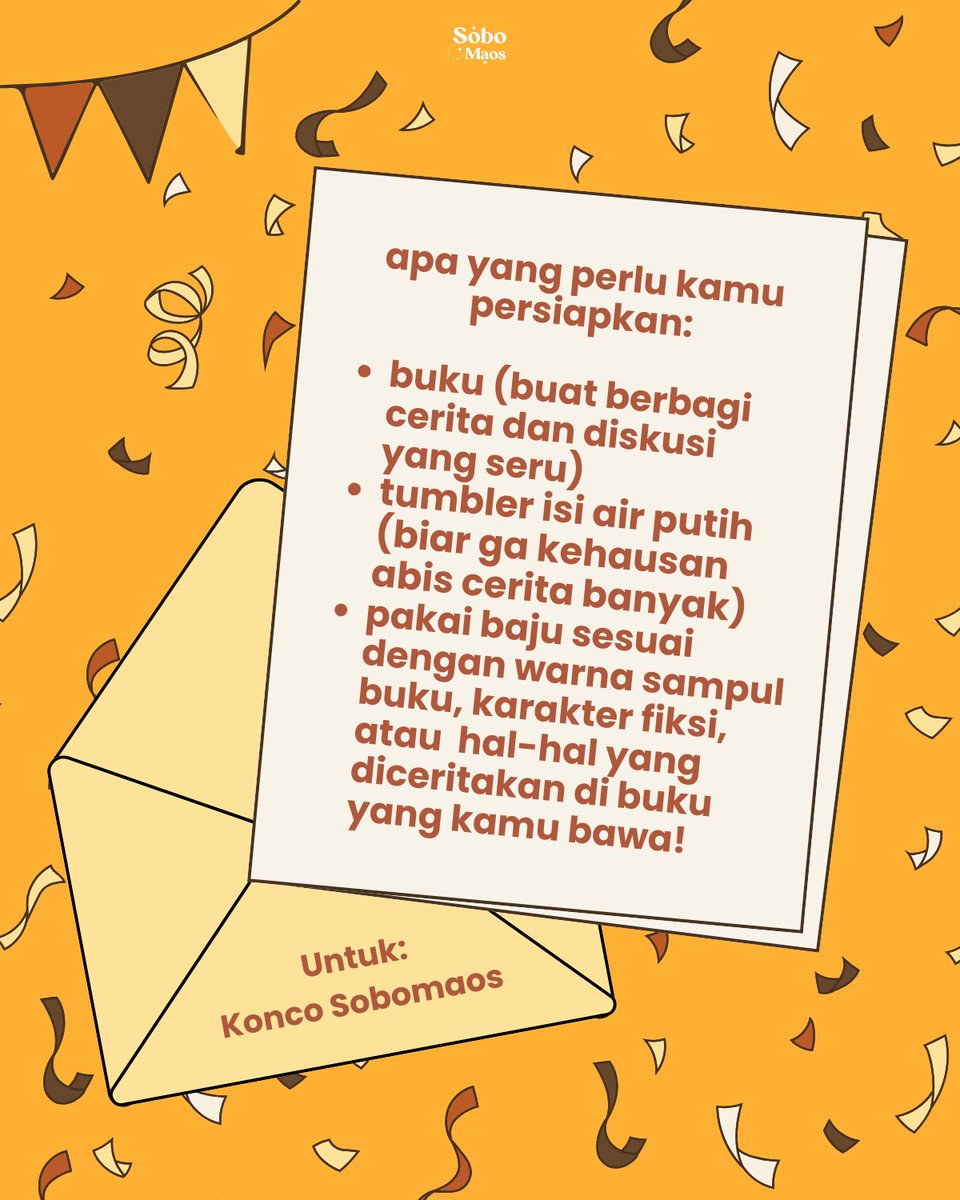 Sobo
Maos
apa yang perlu kamu
persiapkan:
• buku (buat berbagi
cerita dan diskusi
yang seru)
• tumbler isi air putih
(biar ga kehausan
abis cerita banyak)
• pakai baju sesuai
dengan warna sampul
buku, karakter fiksi,
atau  hal-hal yang
diceritakan di buku
yang kamu bawa!
Untuk:
Konco Sobomaos